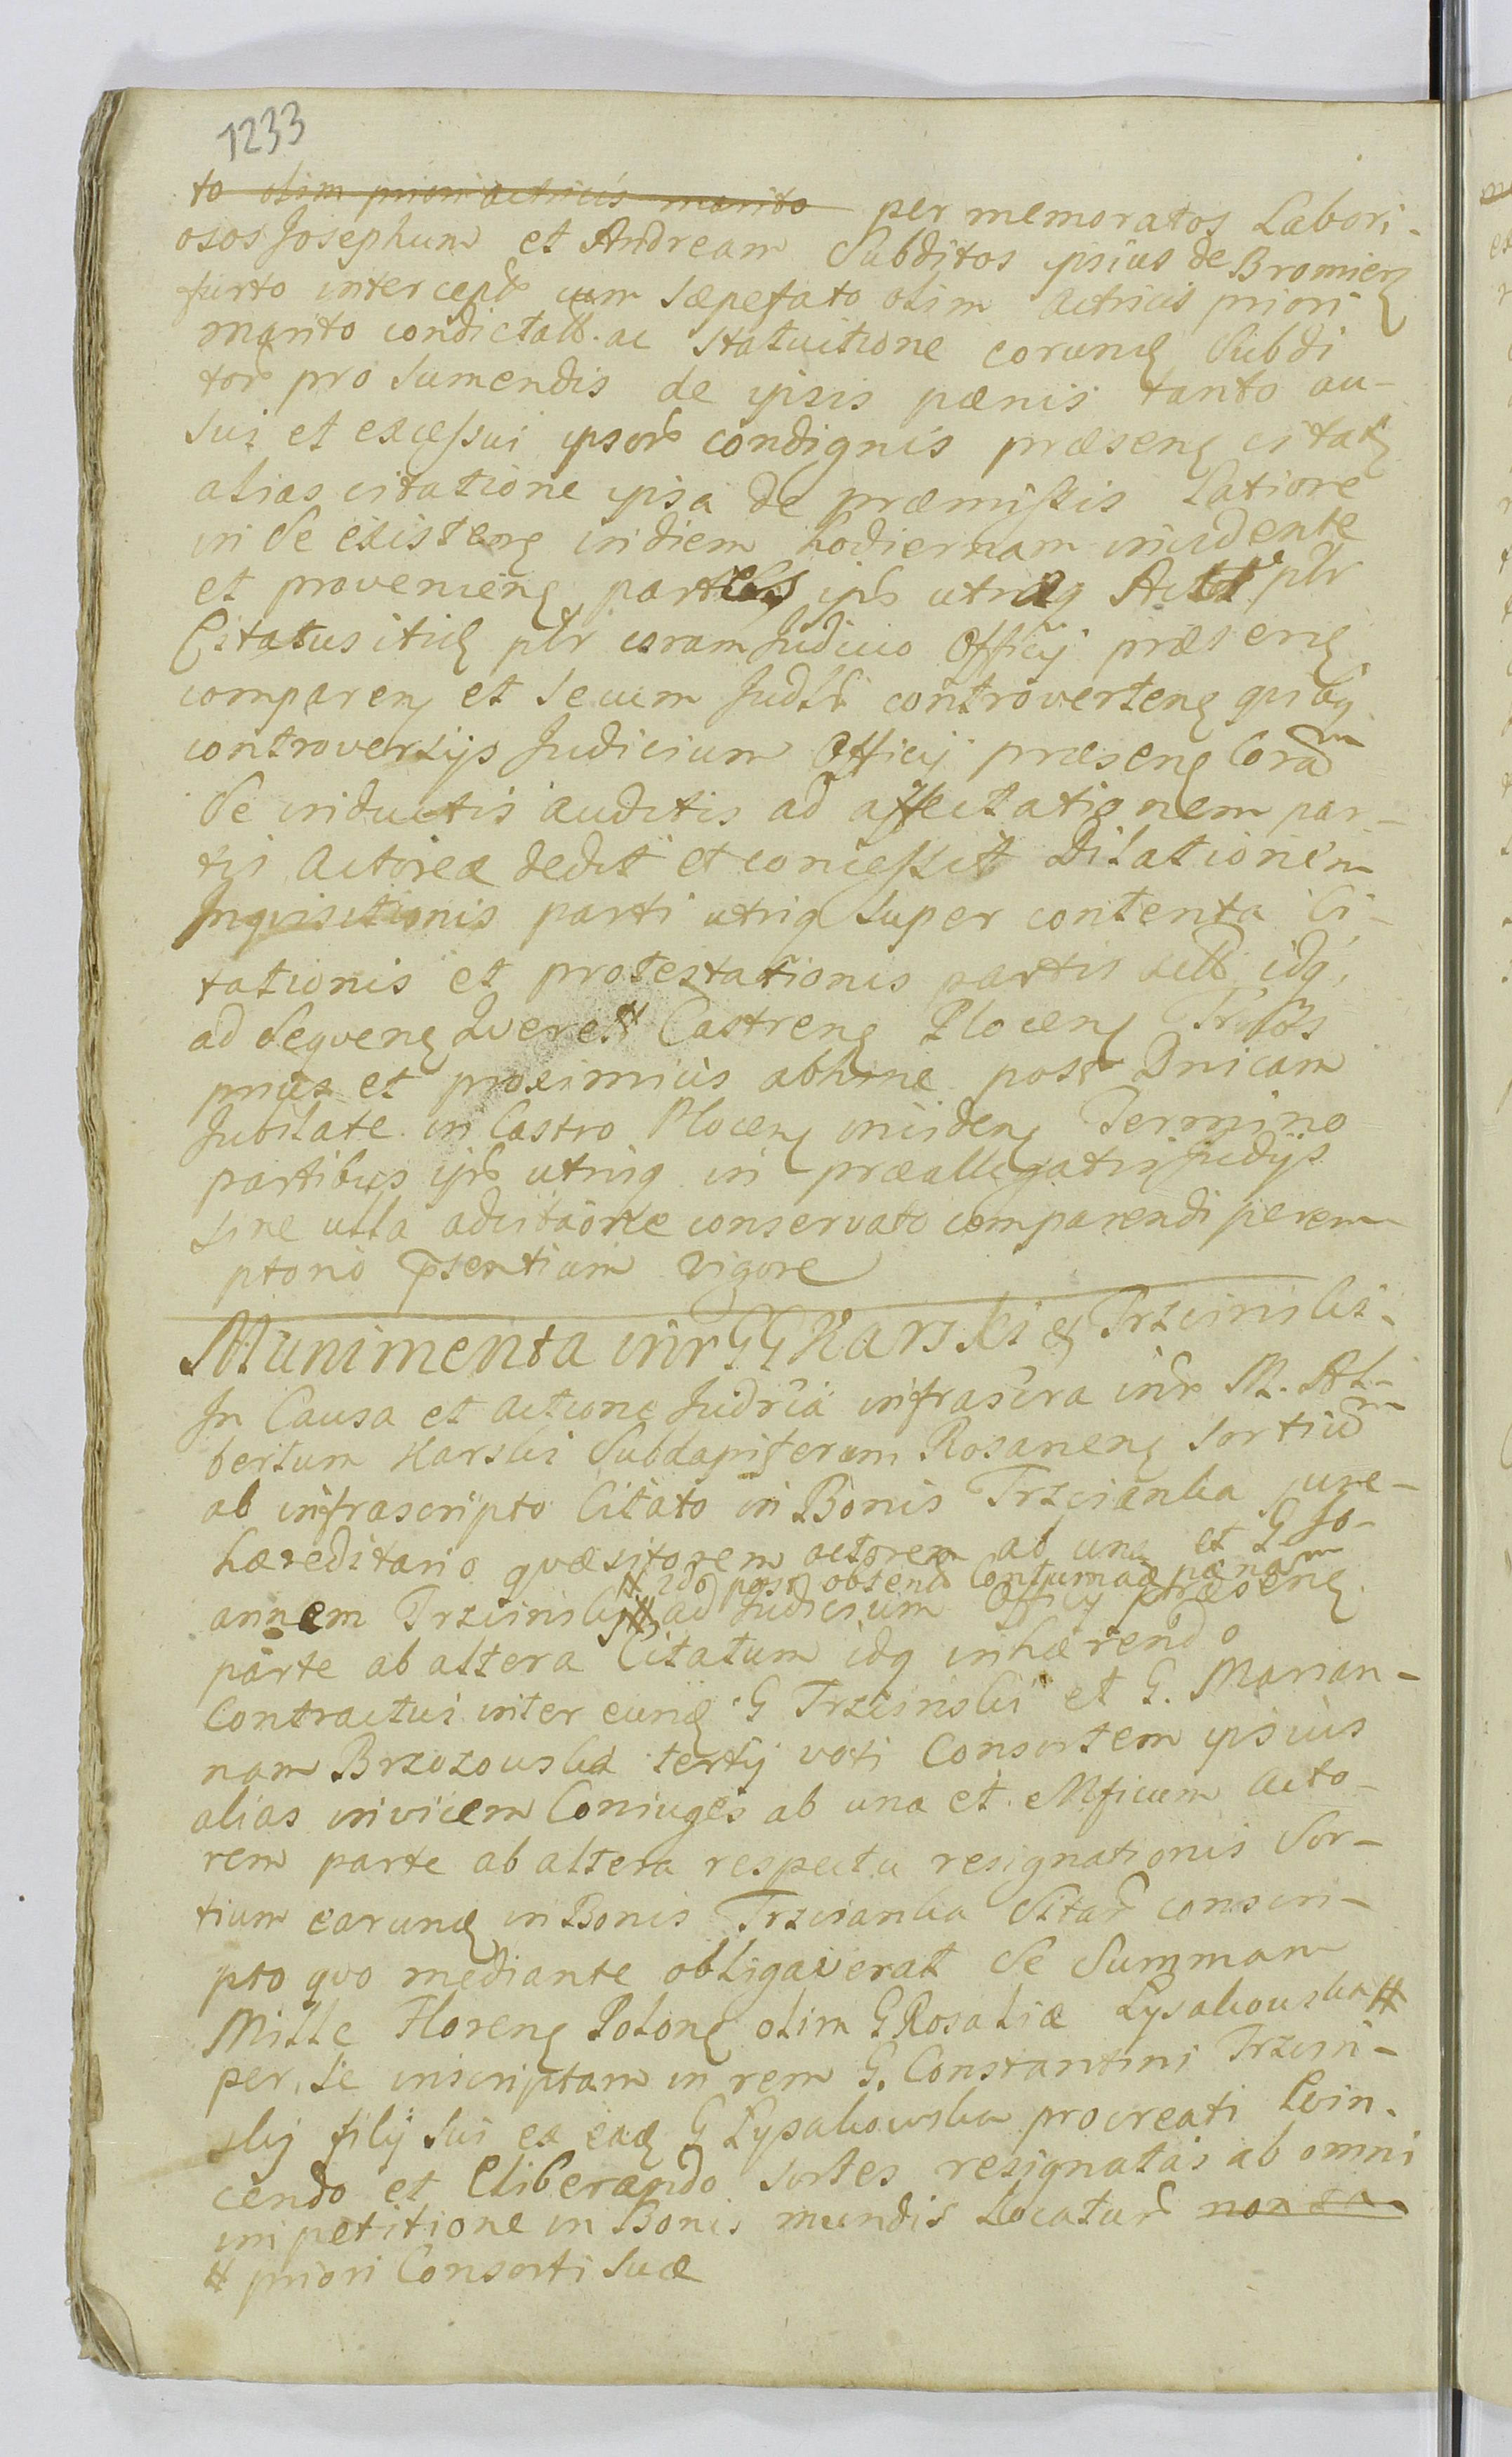 1233
to olim priori actricis marito per memoratos Labori-
osos Josephum et Andream Subditos ipsius de Bromierz
furto intercept cum sæpefato olim Actricis priori
marito condictalt. ac statuitione eorund Subdi
tor pro sumendis de ipsis pœnis tanto au-
sui et excessui ipsor condignis præsens citat
alias citatione ipsa de præmissis Latiore
in se existens in diem hodiernam incidente
et proveniens partibus ips utrinq Act plr
Citatus itid plr coram Judicio Officij præsens
comparen et secum Judlr controvertens quibq
controversijs Judicium Officij præsens Coram
se inductis auditis ad affectationem par-
tis Actoreæ dedit et concessit Dilationem
Inquisitionis parti utriq super contenta Ci-
tationis et protestationis partis idq,
ad sequens Querel Castrens Plocens
prius et proximius abhinc post Dnicam
Jubilate in Castro Plocens inciden Termino
partibus ips utrinq in præallegatis Judijs
sine ulla adcitaone conservato comparendi perem
ptorio psentium vigore
Munimenta intr GG Karski & Trzcinski.
In Causa et actione Judria infrascra intr M. Al-
bertum Karski Subdapiferum Rosanens sortium
ab infrascripto Citato in Bonis Trzcianka jure-
hæreditario quæsitorem actorem ab una et G Jo-
# 2do post obtent Contumaæ pænam
annem Trzcinski # ad Judicium Officij præsens
parte ab altera Citatum idq inhærendo
Contractui inter eund G Trzcinski et G. Marian-
nam Brzozowska tertij voti Consortem ipsius
alias invicem Coniuges ab una et Mficum Acto-
rem parte ab altera respectu resignationis Sor-
tium earund in Bonis Trzcianka Sitar conscri-
pto quo mediante obligaverat se Summam
Mille Florens Polon olim G Rosaliæ Lysakowska #
per se inscriptam in rem G. Constantini Trzcin-
skij filij sui ex ead G Lysakowska procreati Evin-
cendo et Eliberando sortes resignatas ab omni
impetitione in Bonis mundis Locatur non
# priori Consorti suæ